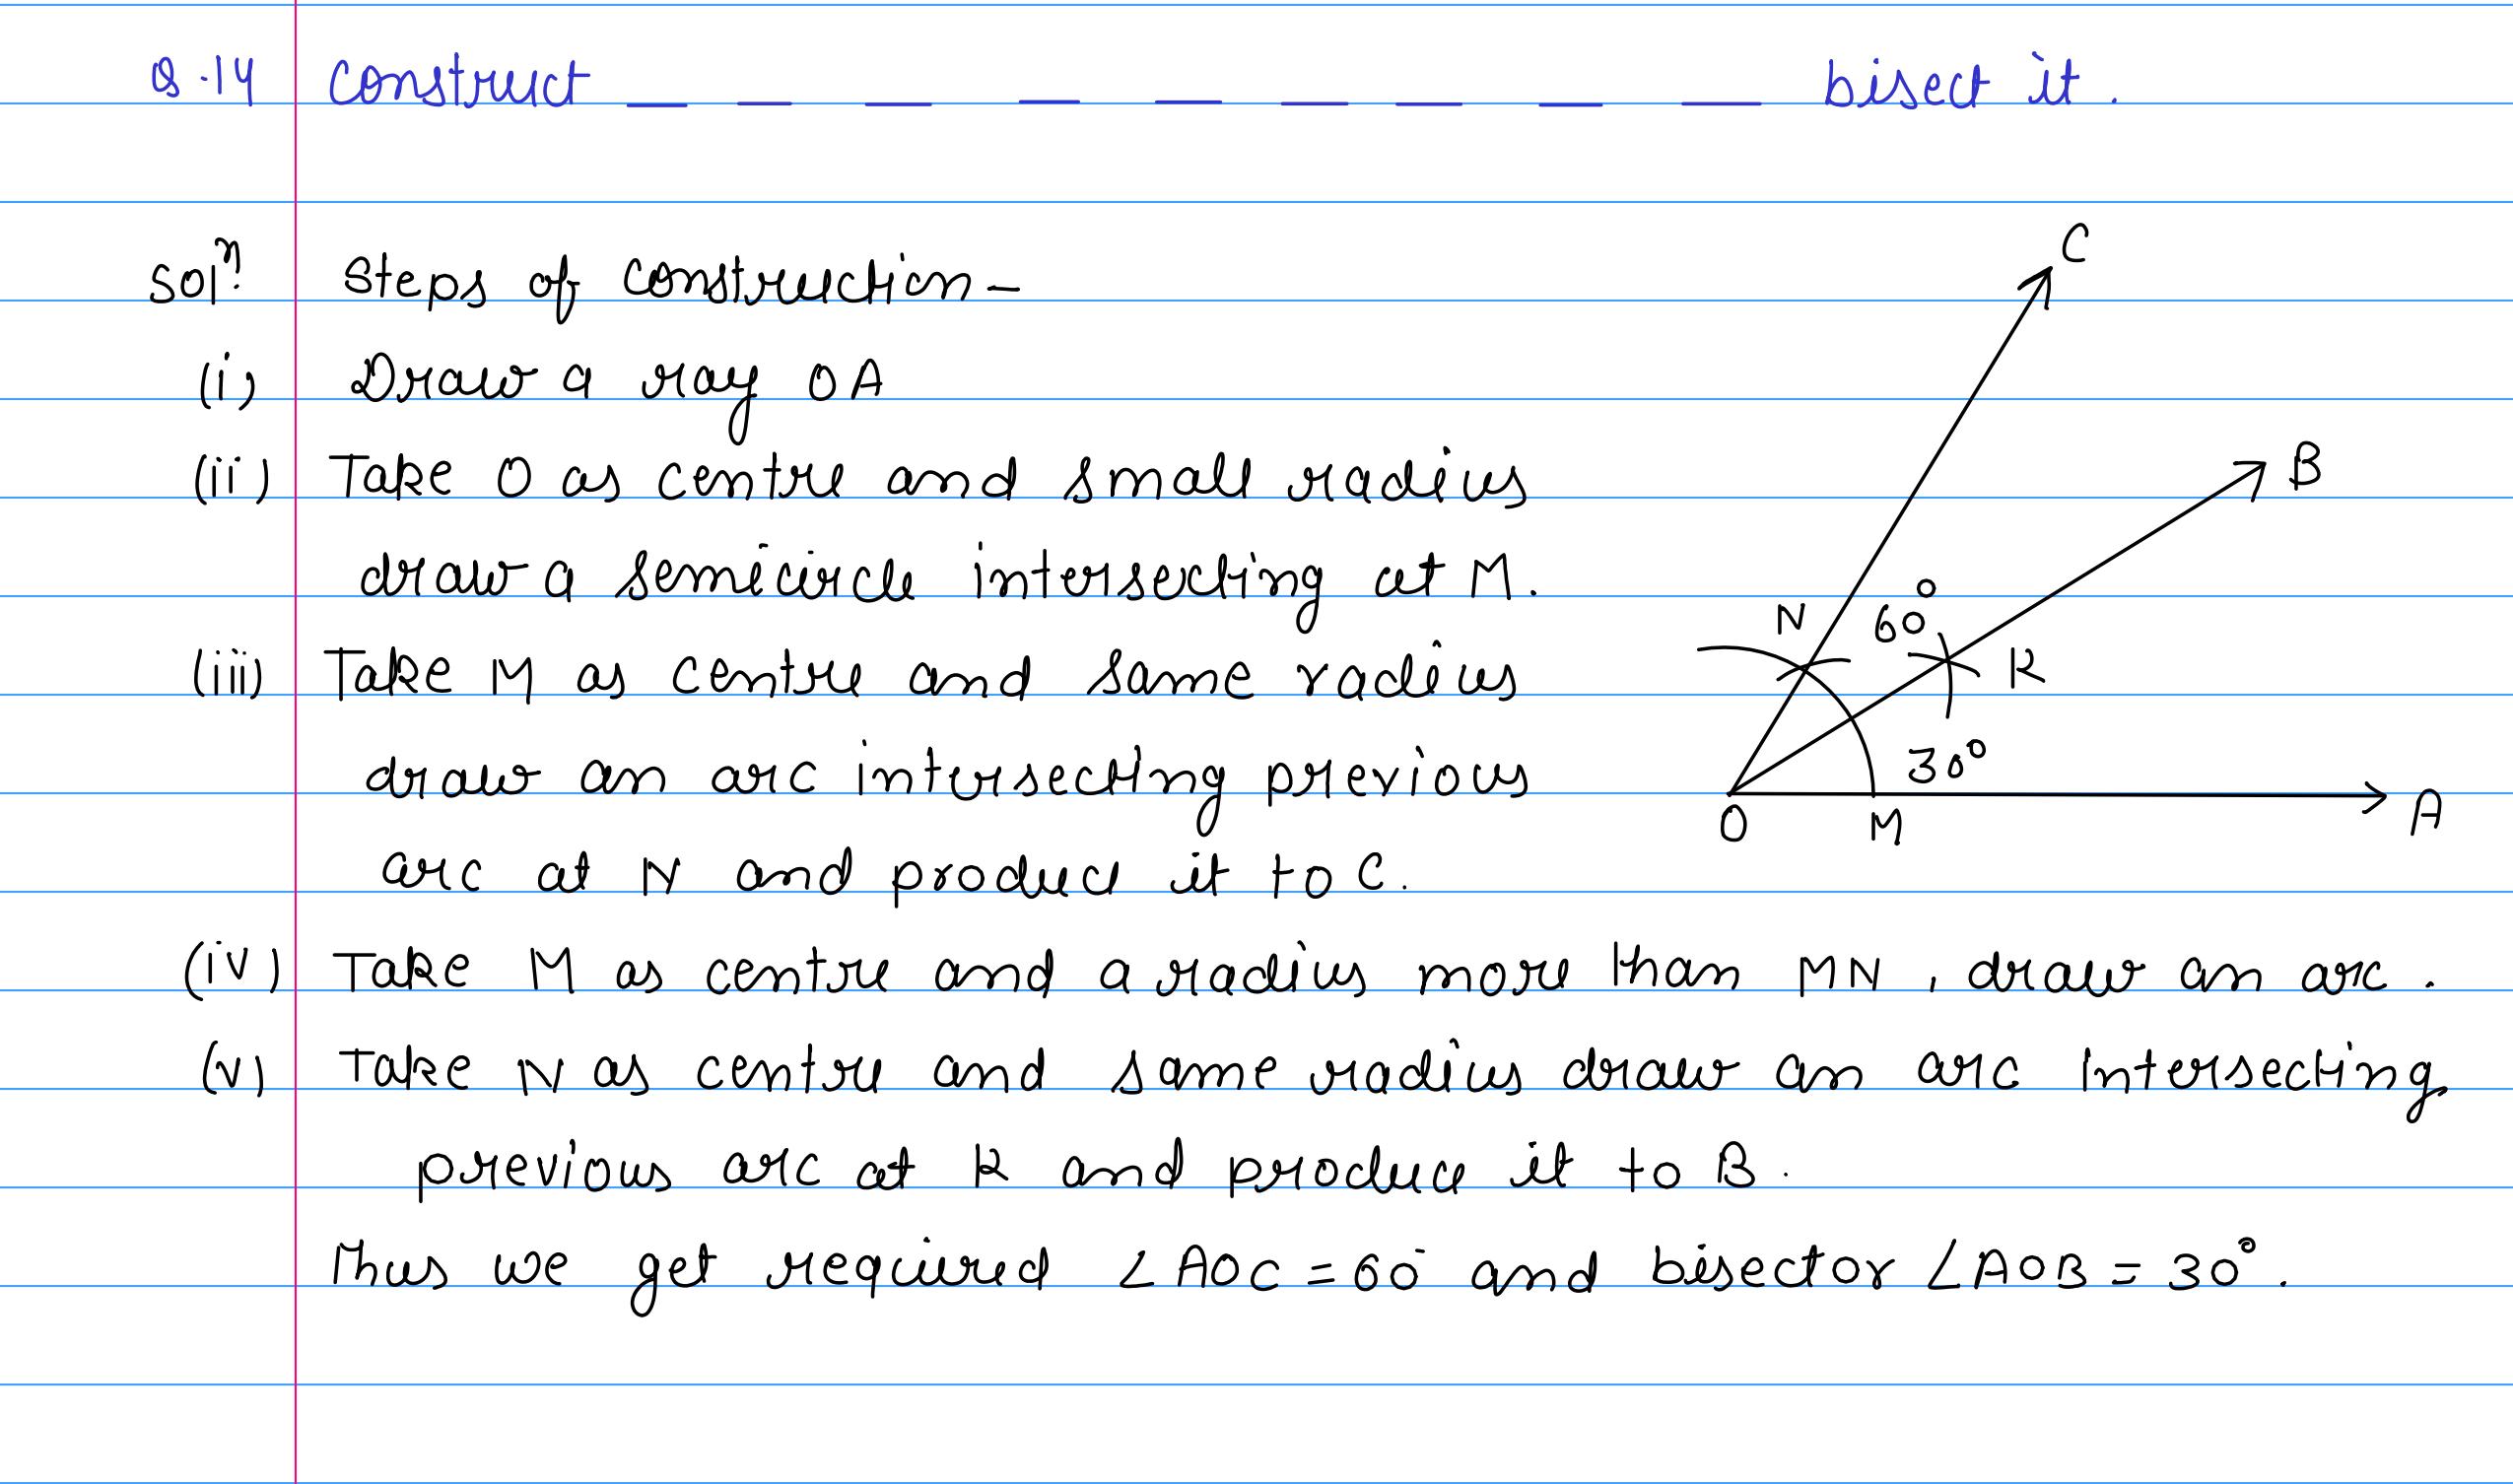 Q.14 Construct _ _ _ _ _ _ _ _ _ bisect it.
Solⁿ. Steps of Construction-
(i) Draw a ray OA
(ii) Take O as centre and small radius
draw a semicircle intersecting at M.
(iii) Take M as centre and same radius
draw an arc intersecting previous
arc at N and produce it to C.
(iv) Take M as centre and a radius more than MN, draw an arc.
(v) Take N as centre and same radius draw an arc intersecting
previous arc at K and produce it to B.
Thus we get required ∠AOC = 60 and bisector ∠AOB = 30°.
C
B
N
60°
K
30°
O
M
A